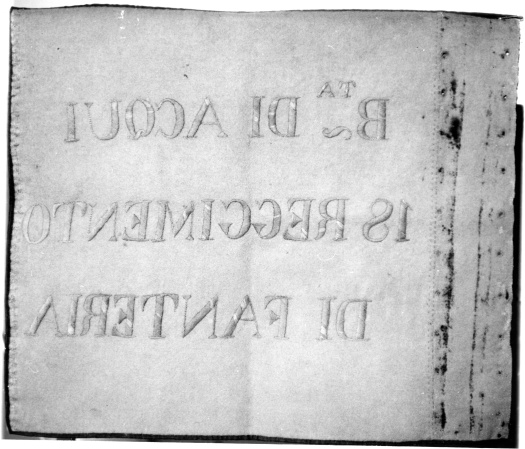 B.TA DI ACQUI
18 REGGIMENTO
DI FANTERIA